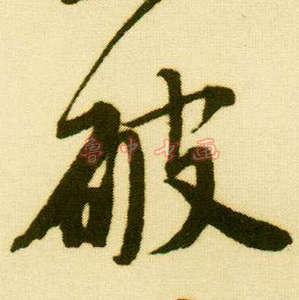 破
鲁中书画